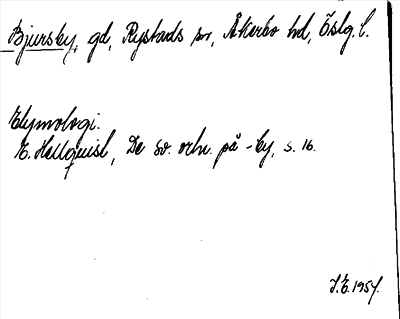 Bjursby, gd, Rystads sn, Åkerbo hd, Östg. l.
Etymologi.
E. Hellquist, De sv. ortn. på -by, s. 16.
J.E. 1954.